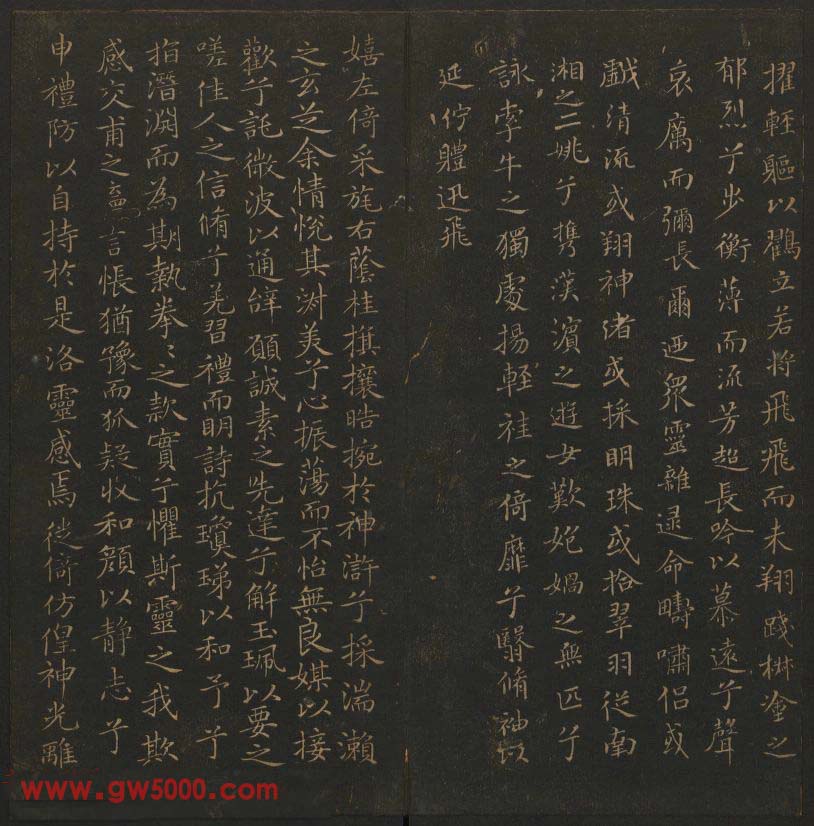 擢輕軀以鸛立若将飛飛而未翔踐椒塗之
郁烈兮步衡薄而流芳超長吟以慕遠兮聲
哀厲而彌長爾迺衆靈雜遝命疇嘯侣或
戯清流或翔神渚或採明珠或拾翠羽從南
湘之二姚兮携漢濱之遊女歎媧之無匹兮
詠牽牛之獨處揚輕袿之倚靡兮翳脩袖以
延佇體迅飛
嬉左倚采旄右蔭桂旗攘晧捥於神滸兮採湍瀬
之玄芝余情悅其淑美兮心振蕩而不怡無良媒以接
歡兮託微波以通辭願誠素之先達兮解玉珮以要之
嗟佳人之信脩兮羌習禮而明詩抗瓊珶以和予兮
指潛淵而為期執拳〻之款實兮懼斯靈之我欺
感交甫之言悵猶豫而狐疑收和顏以静志兮
申禮防以自持於是洛靈感焉徙倚仿偟神光離
www.gw5000.com